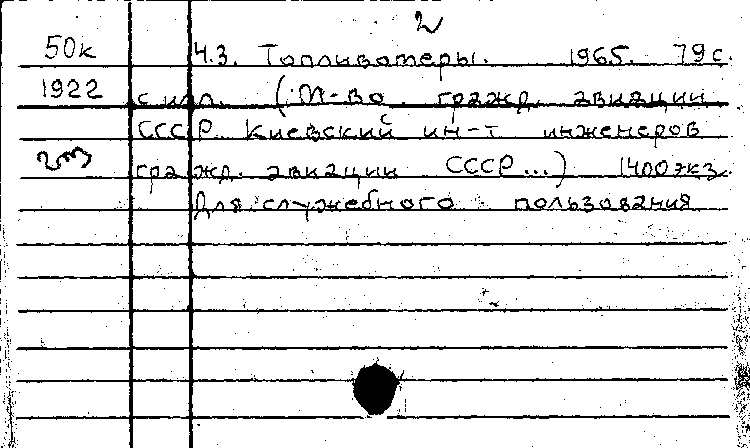 2
50к Ч.3. Топливомеры. 1965. 79с.
1922 с илл. (М-во гражд. авиации
СССР. Киевский ин-т инженеров
гражд. авиации СССР...) 1400экз.
Для служебного пользования